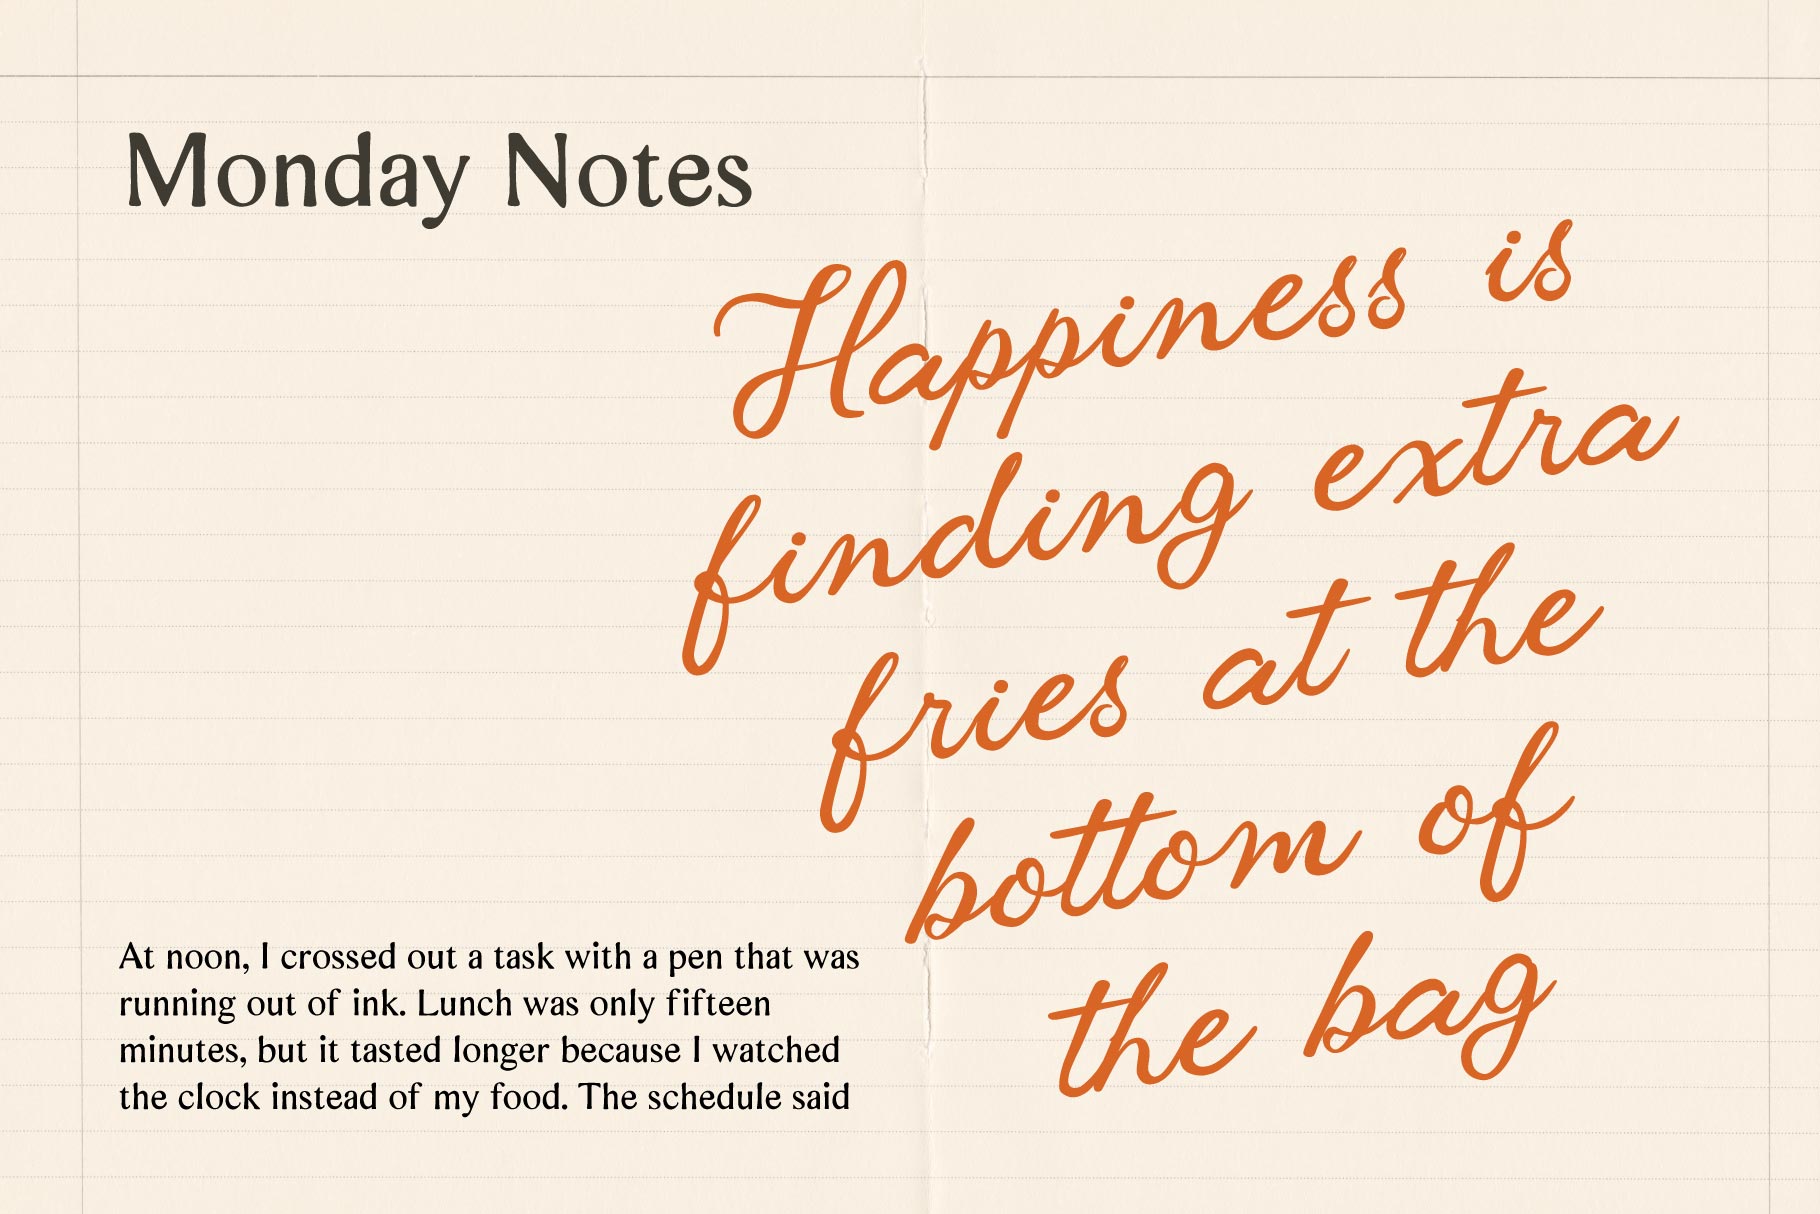 Monday Notes
Happiness is
finding extra
fries at the
bottom of
the bag
At noon, I crossed out a task with a pen that was
running out of ink. Lunch was only fifteen
minutes, but it tasted longer because I watched
the clock instead of my food. The schedule said